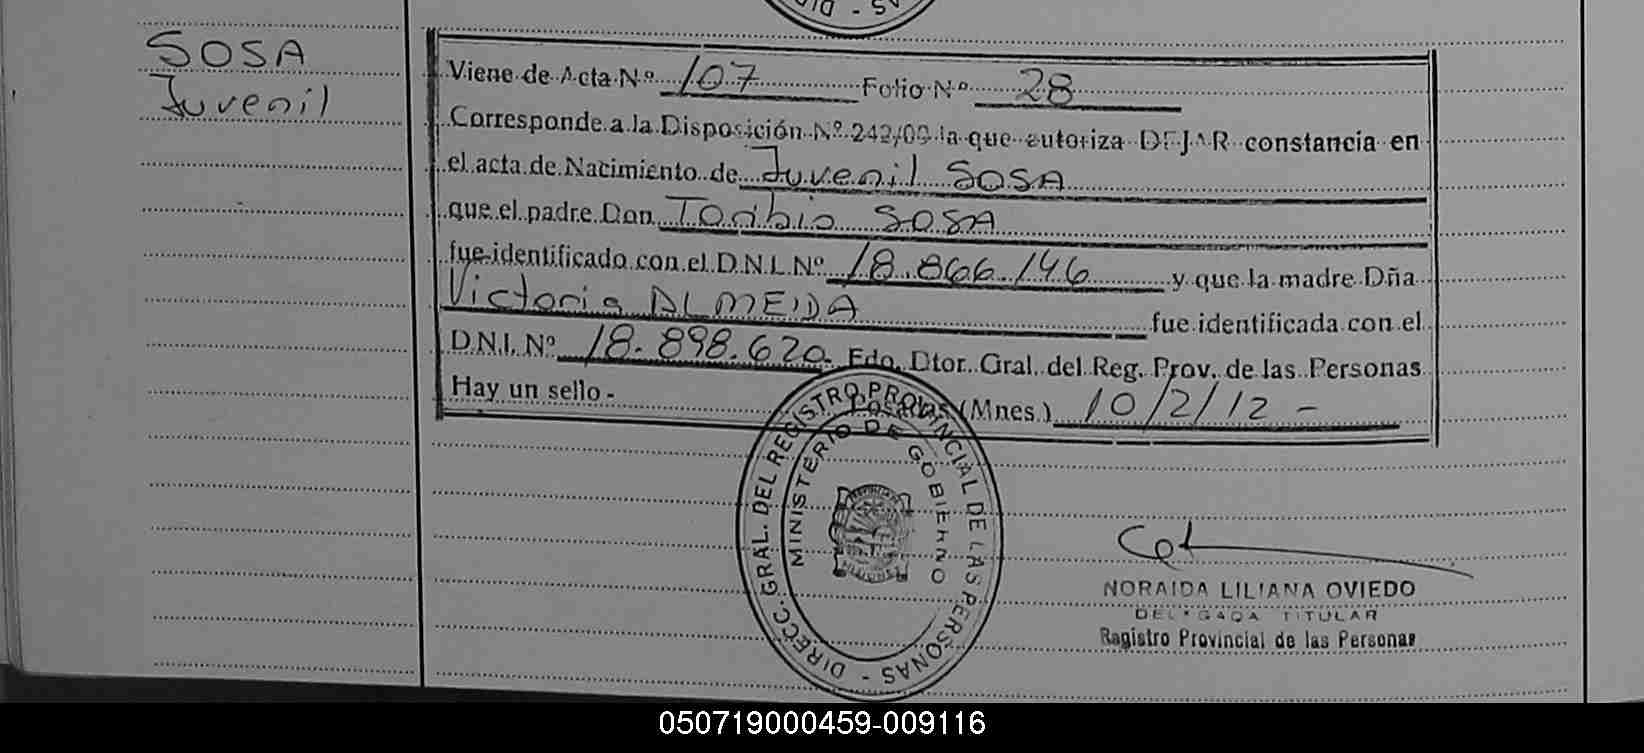 SOSA
Juvenil
Viene de Acta Nº 107 Folio Nº 28
Corresponde a la Disposición Nº 242/09 la que autoriza DEJAR constancia en
el acta de Nacimiento de Juvenil SOSA
que el padre Don Toribio SOSA
fue identificado con el D.N.I. Nº 18.866.146 y que la madre Dña
Victoria ALMEIDA fue identificada con el
D.N.I. Nº 18.898.620. Fdo. Dtor. Gral. del Reg. Prov. de las Personas
Hay un sello - Posadas (Mnes.) 10/2/12 -
DIRECC. GRAL. DEL REGISTRO PROVINCIAL DE LAS PERSONAS -
MINISTERIO DE GOBIERNO
NORAIDA LILIANA OVIEDO
DELEGADA TITULAR
Registro Provincial de las Personas
050719000459-009116